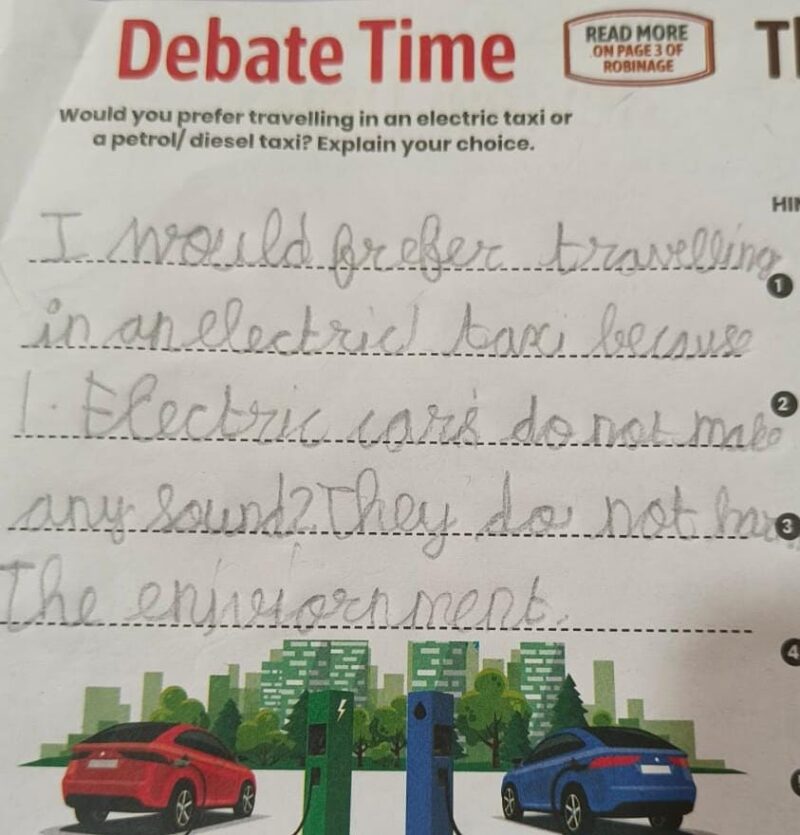 Debate Time
READ MORE
ON PAGE 3 OF
ROBINAGE
Would you prefer travelling in an electric taxi or
a petrol/ diesel taxi? Explain your choice.
I would prefer travelling
in an electric taxi because
1. Electric cars do not make
any sound 2 They do not
The enjviornment.
1
2
3
4